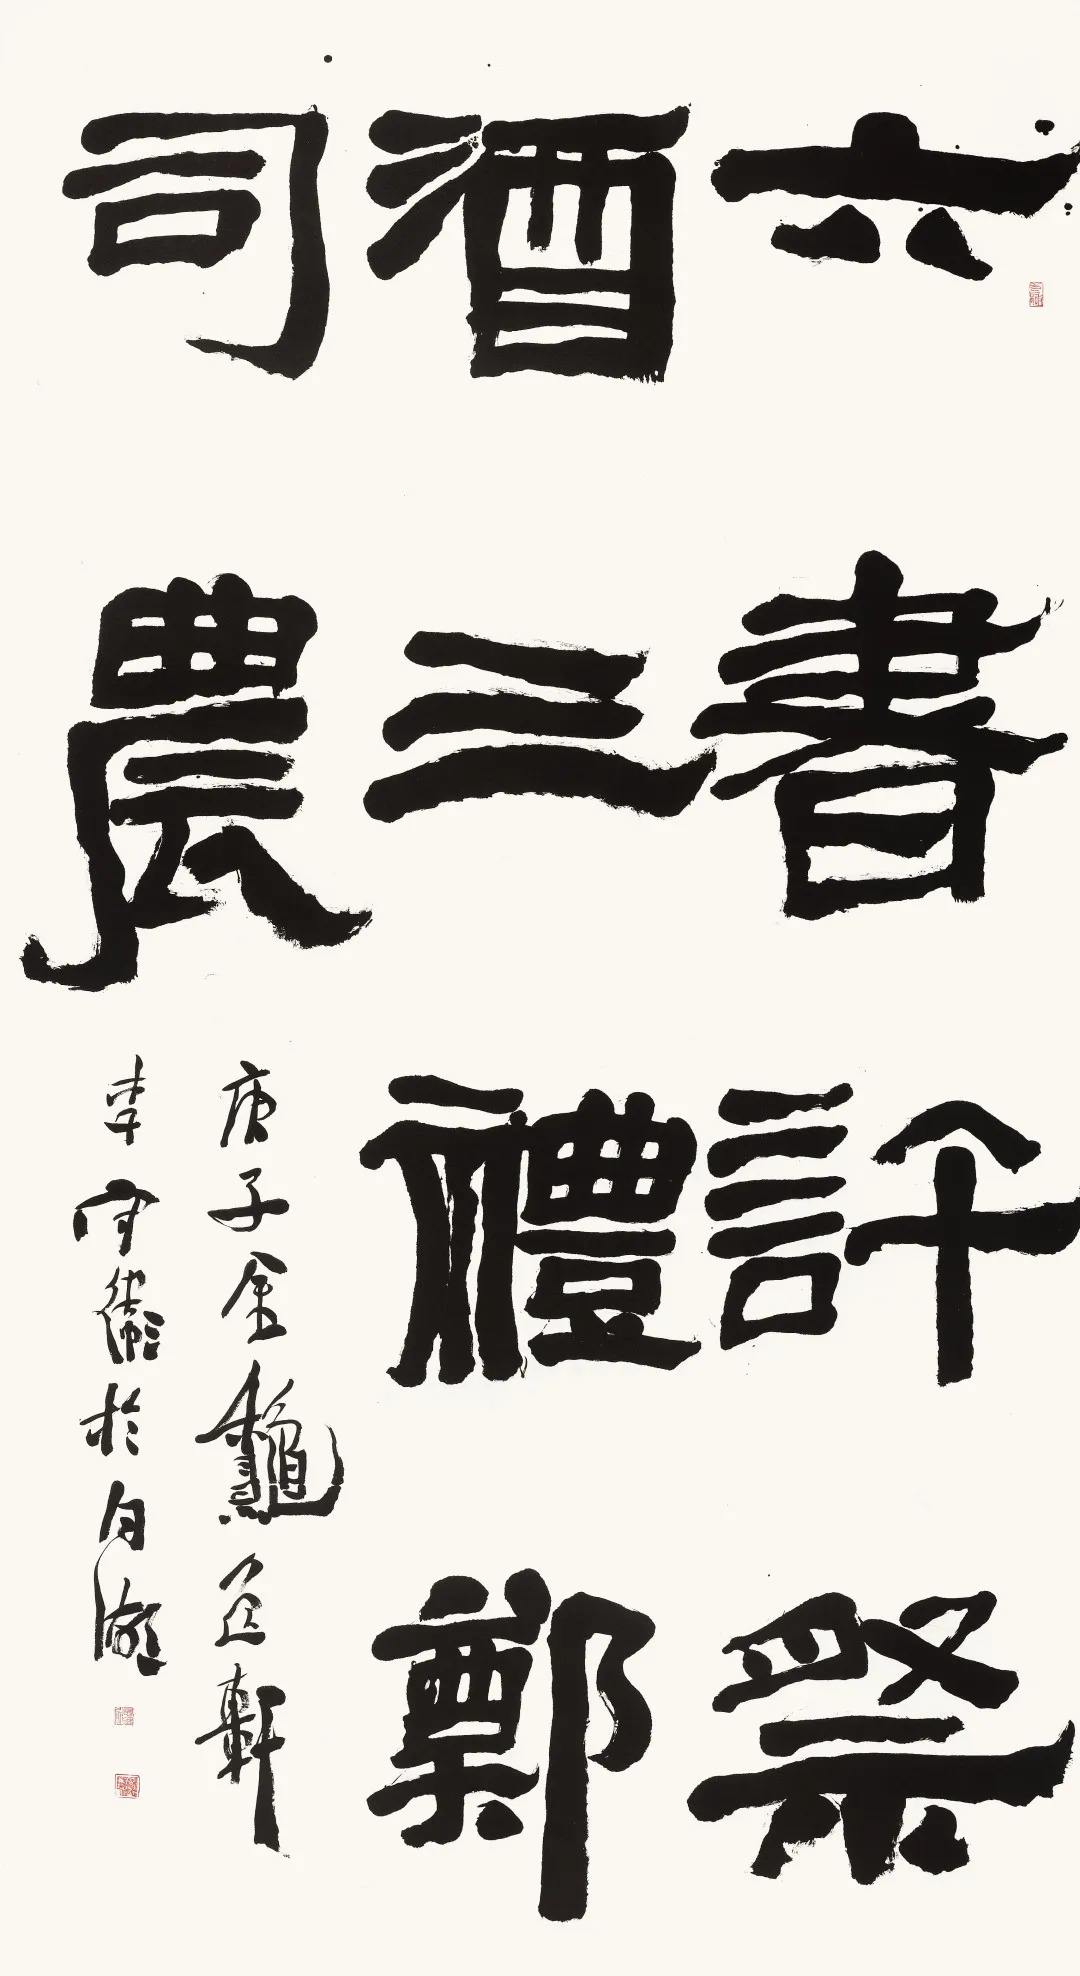 六書許祭
酒三禮鄭
司農
庚子金龝逸軒
李守衛於白湖